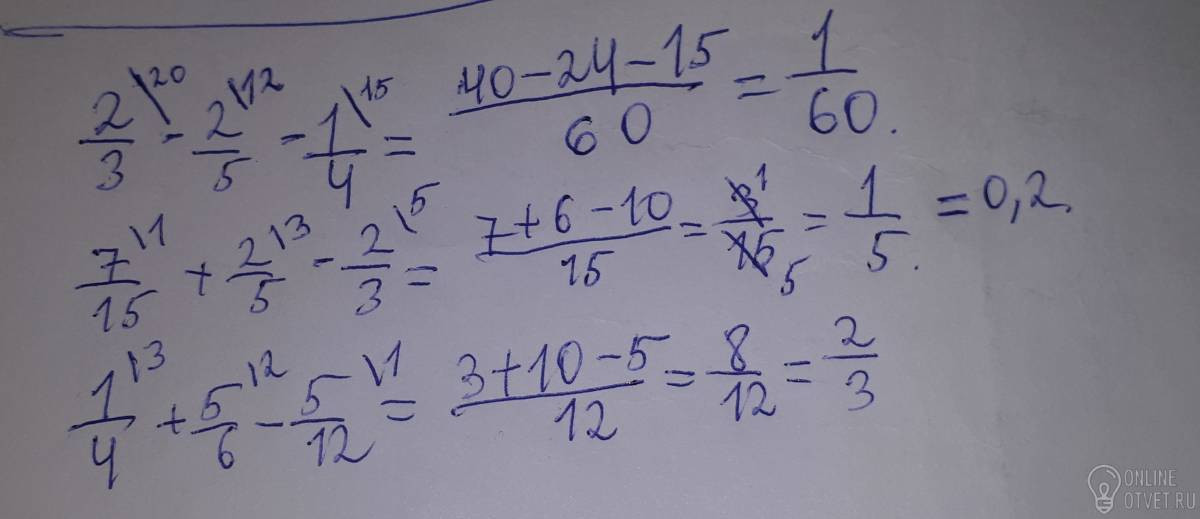 2/3\20 - 2/5\12 - 1/4\15 = 40-24-15/60 = 1/60.
7/15\1 + 2/5\3 - 2/3\5 = 7+6-10/15 = 3 1/15 5 = 1/5. = 0,2.
1/4\3 + 5/6\2 - 5/12\1 = 3+10-5/12 = 8/12 = 2/3
ONLINE
OTVET.RU